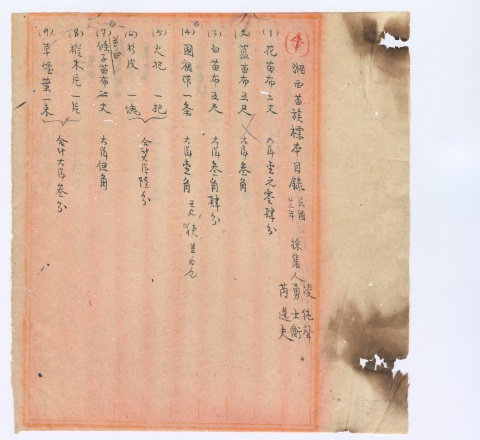 (4) 湘西苗族標本目錄 民國廿二年 採集人 凌純聲 勇士衡 芮逸夫
(1) 花苗布二丈 大洋壹元零肆分
(2) 藍苗布五尺 大洋叁角
(3) 白苗布五尺 大洋叁角肆分
(4) 圍裙帶一条 大洋壹角
(5) 火把 一把
(6) 杉皮 一塊 合共大洋陸分
(7) 條子苗布二丈 大洋伍角
(8) 椎木片一片
(9) 草煙葉一束 合計大洋叁分